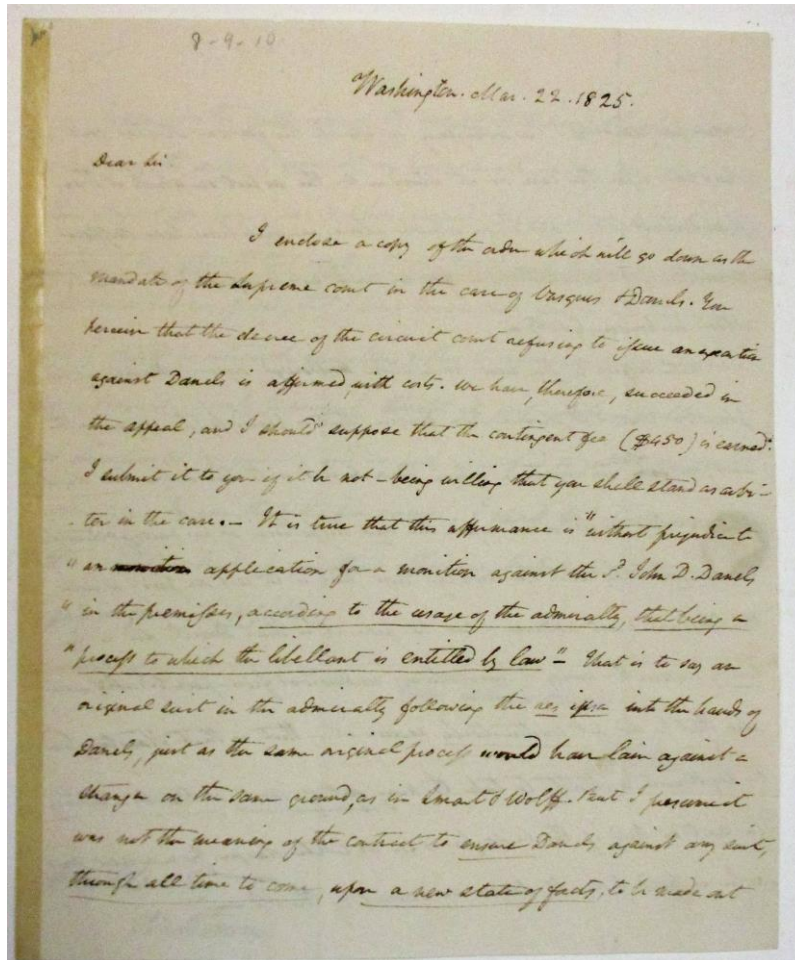 8-9-10
Washington. Mar. 22. 1825.
Dear Sir
I enclose a copy of the order which will go down as the
mandate of the Supreme court in the case of Vasques & Daniels. You
perceive that the decree of the circuit court refusing to issue an
against Daniels is affirmed with costs. We have, therefore, succeeded in
the appeal, and I should suppose that the contingent fee ($450) is earned.
I submit it to you if it be not – being willing that you shall stand as arbi-
-ter in the case. – It is true that this affirmance is "without prejudice to
" an monition application for a monition against the sd. John D. Daniels
" in the premisses, according to the usage of the admiralty, that being a
" process to which the libellant is entitled by law" – that is to say an
original suit in the admiralty following the res ipsa into the hands of
Daniels, just as the same original process would have lain against a
on the same ground, as in Smart & Wolff. But I presume it
was not the meaning of the contract to ensure Daniels against any suit,
through all time to come, upon a new state of facts, to be made out